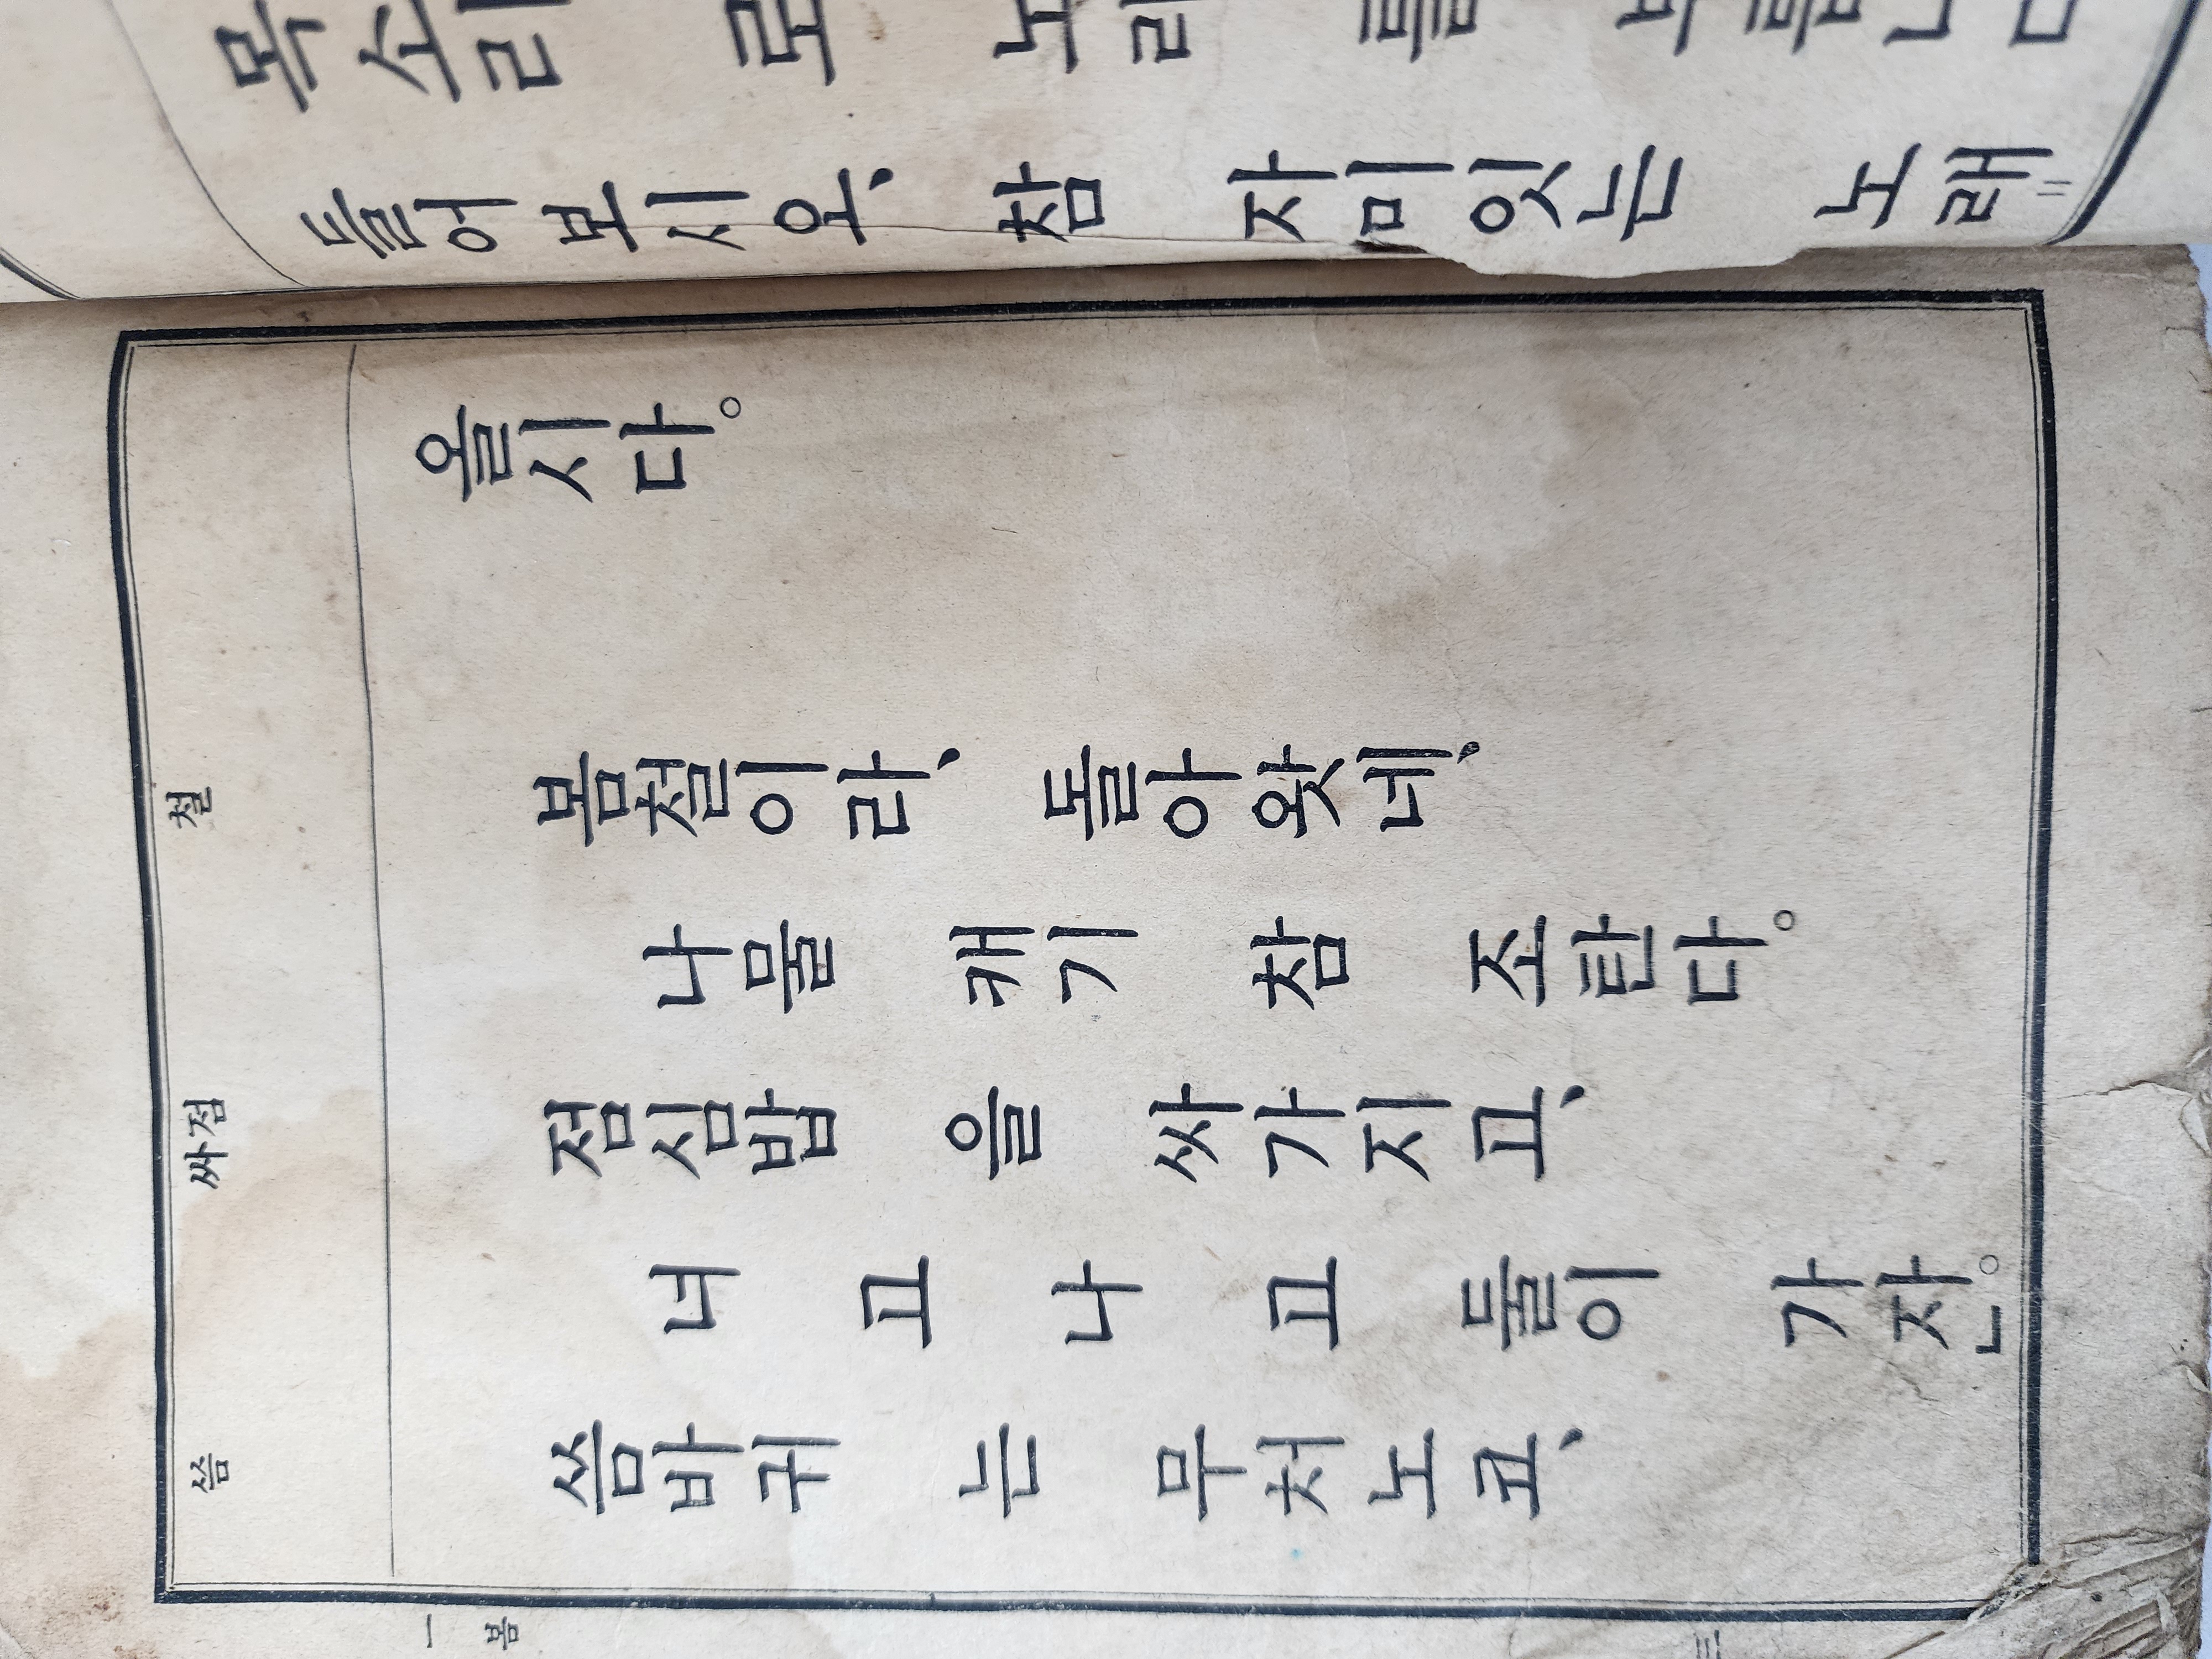 목소리 로 노래 를
들어보시오、 참 자미잇는 노래
올시다。
철
봄철이라、 돌아왓네、
나물 캐기 참 조탄다。
점 싸
점심밥 을 싸가지고、
너 고 나 고 둘이 가잔。
씀
씀바귀 는 무처노코、
一 봄 三